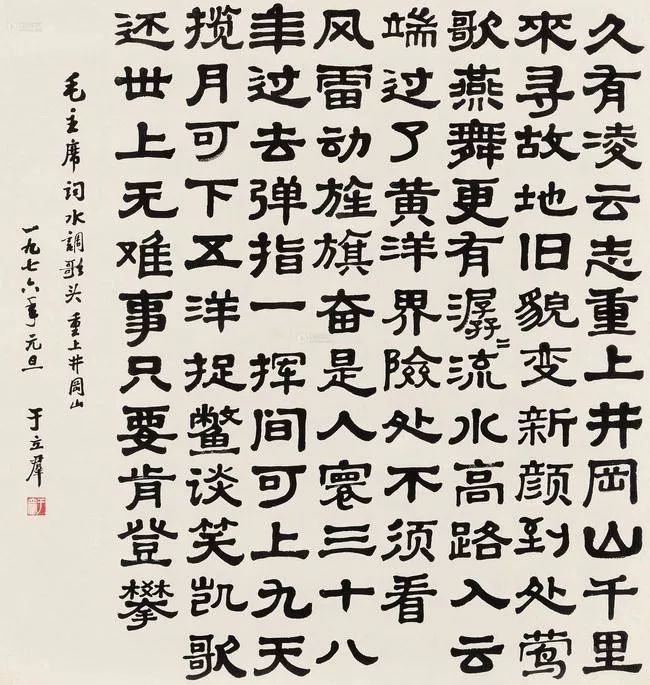 久有凌云志重上井岡山千里
來寻故地旧貌变新颜到处莺
歌燕舞更有潺〻流水高路入云
端过了黄洋界險处不须看
风雷动旌旗奋是人寰三十八
年过去弹指一挥间可上九天
揽月可下五洋捉鳖谈笑凯歌
还世上无难事只要肯登攀
毛主席词水調歌头 重上井岡山
一九七六年元旦 于立群